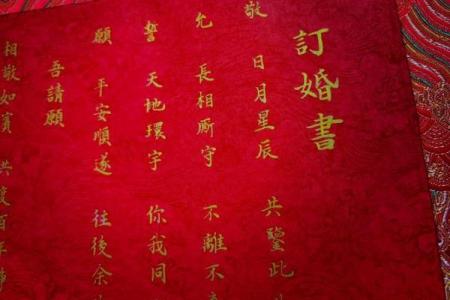 訂婚書
敬 日月星辰 共鑒此
允 長相廝守 不離不
誓 天地環宇 你我同
願 平安順遂 往後余
吾請願
相敬如賓 共度百年